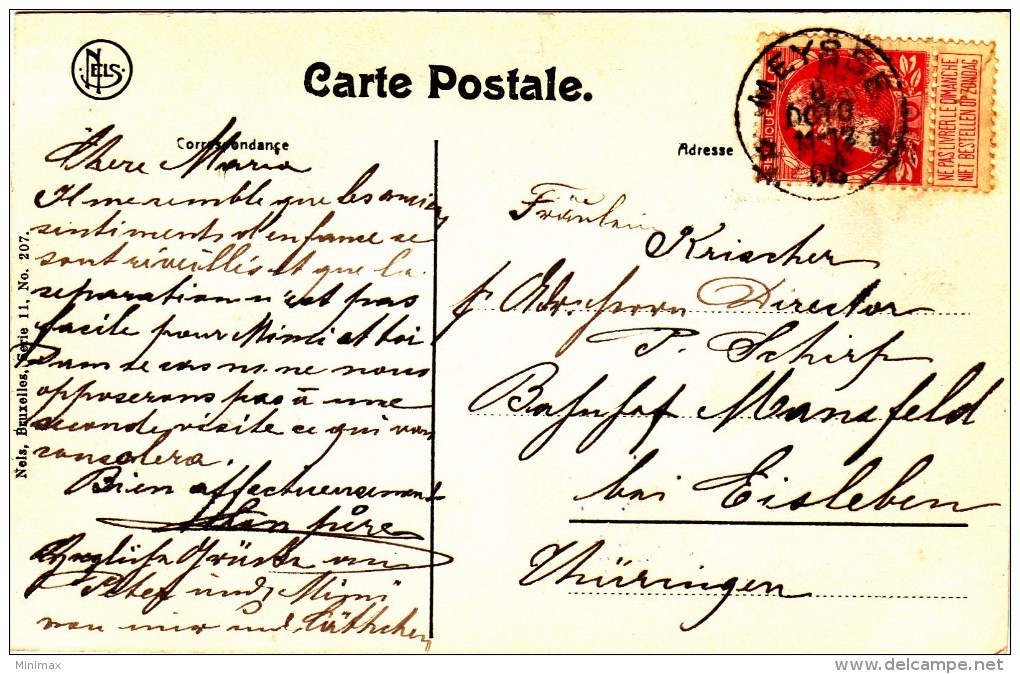 NELS
Carte Postale.
Correspondance
Adresse
MEYSSE
8
OCTO
11-12
06
NE PAS LIVRER LE DIMANCHE
NIET BESTELLEN OP ZONDAG
Nels, Bruxelles, Serie 11, No. 207.
Chere Maria
Il me semble que les anciens
sentiments d'enfance se
sont réveillés et que la
séparation n'est pas
facile pour Mimi et toi
Dans ce cas ns. ne nous
opposerons pas à une
seconde visite ce qui vous
consolera.
Bien affectueusement
père
Herzliche Grüsse an
Peter und Mimi
von mir und Käthchen
Fräulein
Krischer
p. Adr. Herrn Director
P. Schirp
Bahnhof Mansfeld
bei Eisleben
Thüringen
Minimax
delcampe.net